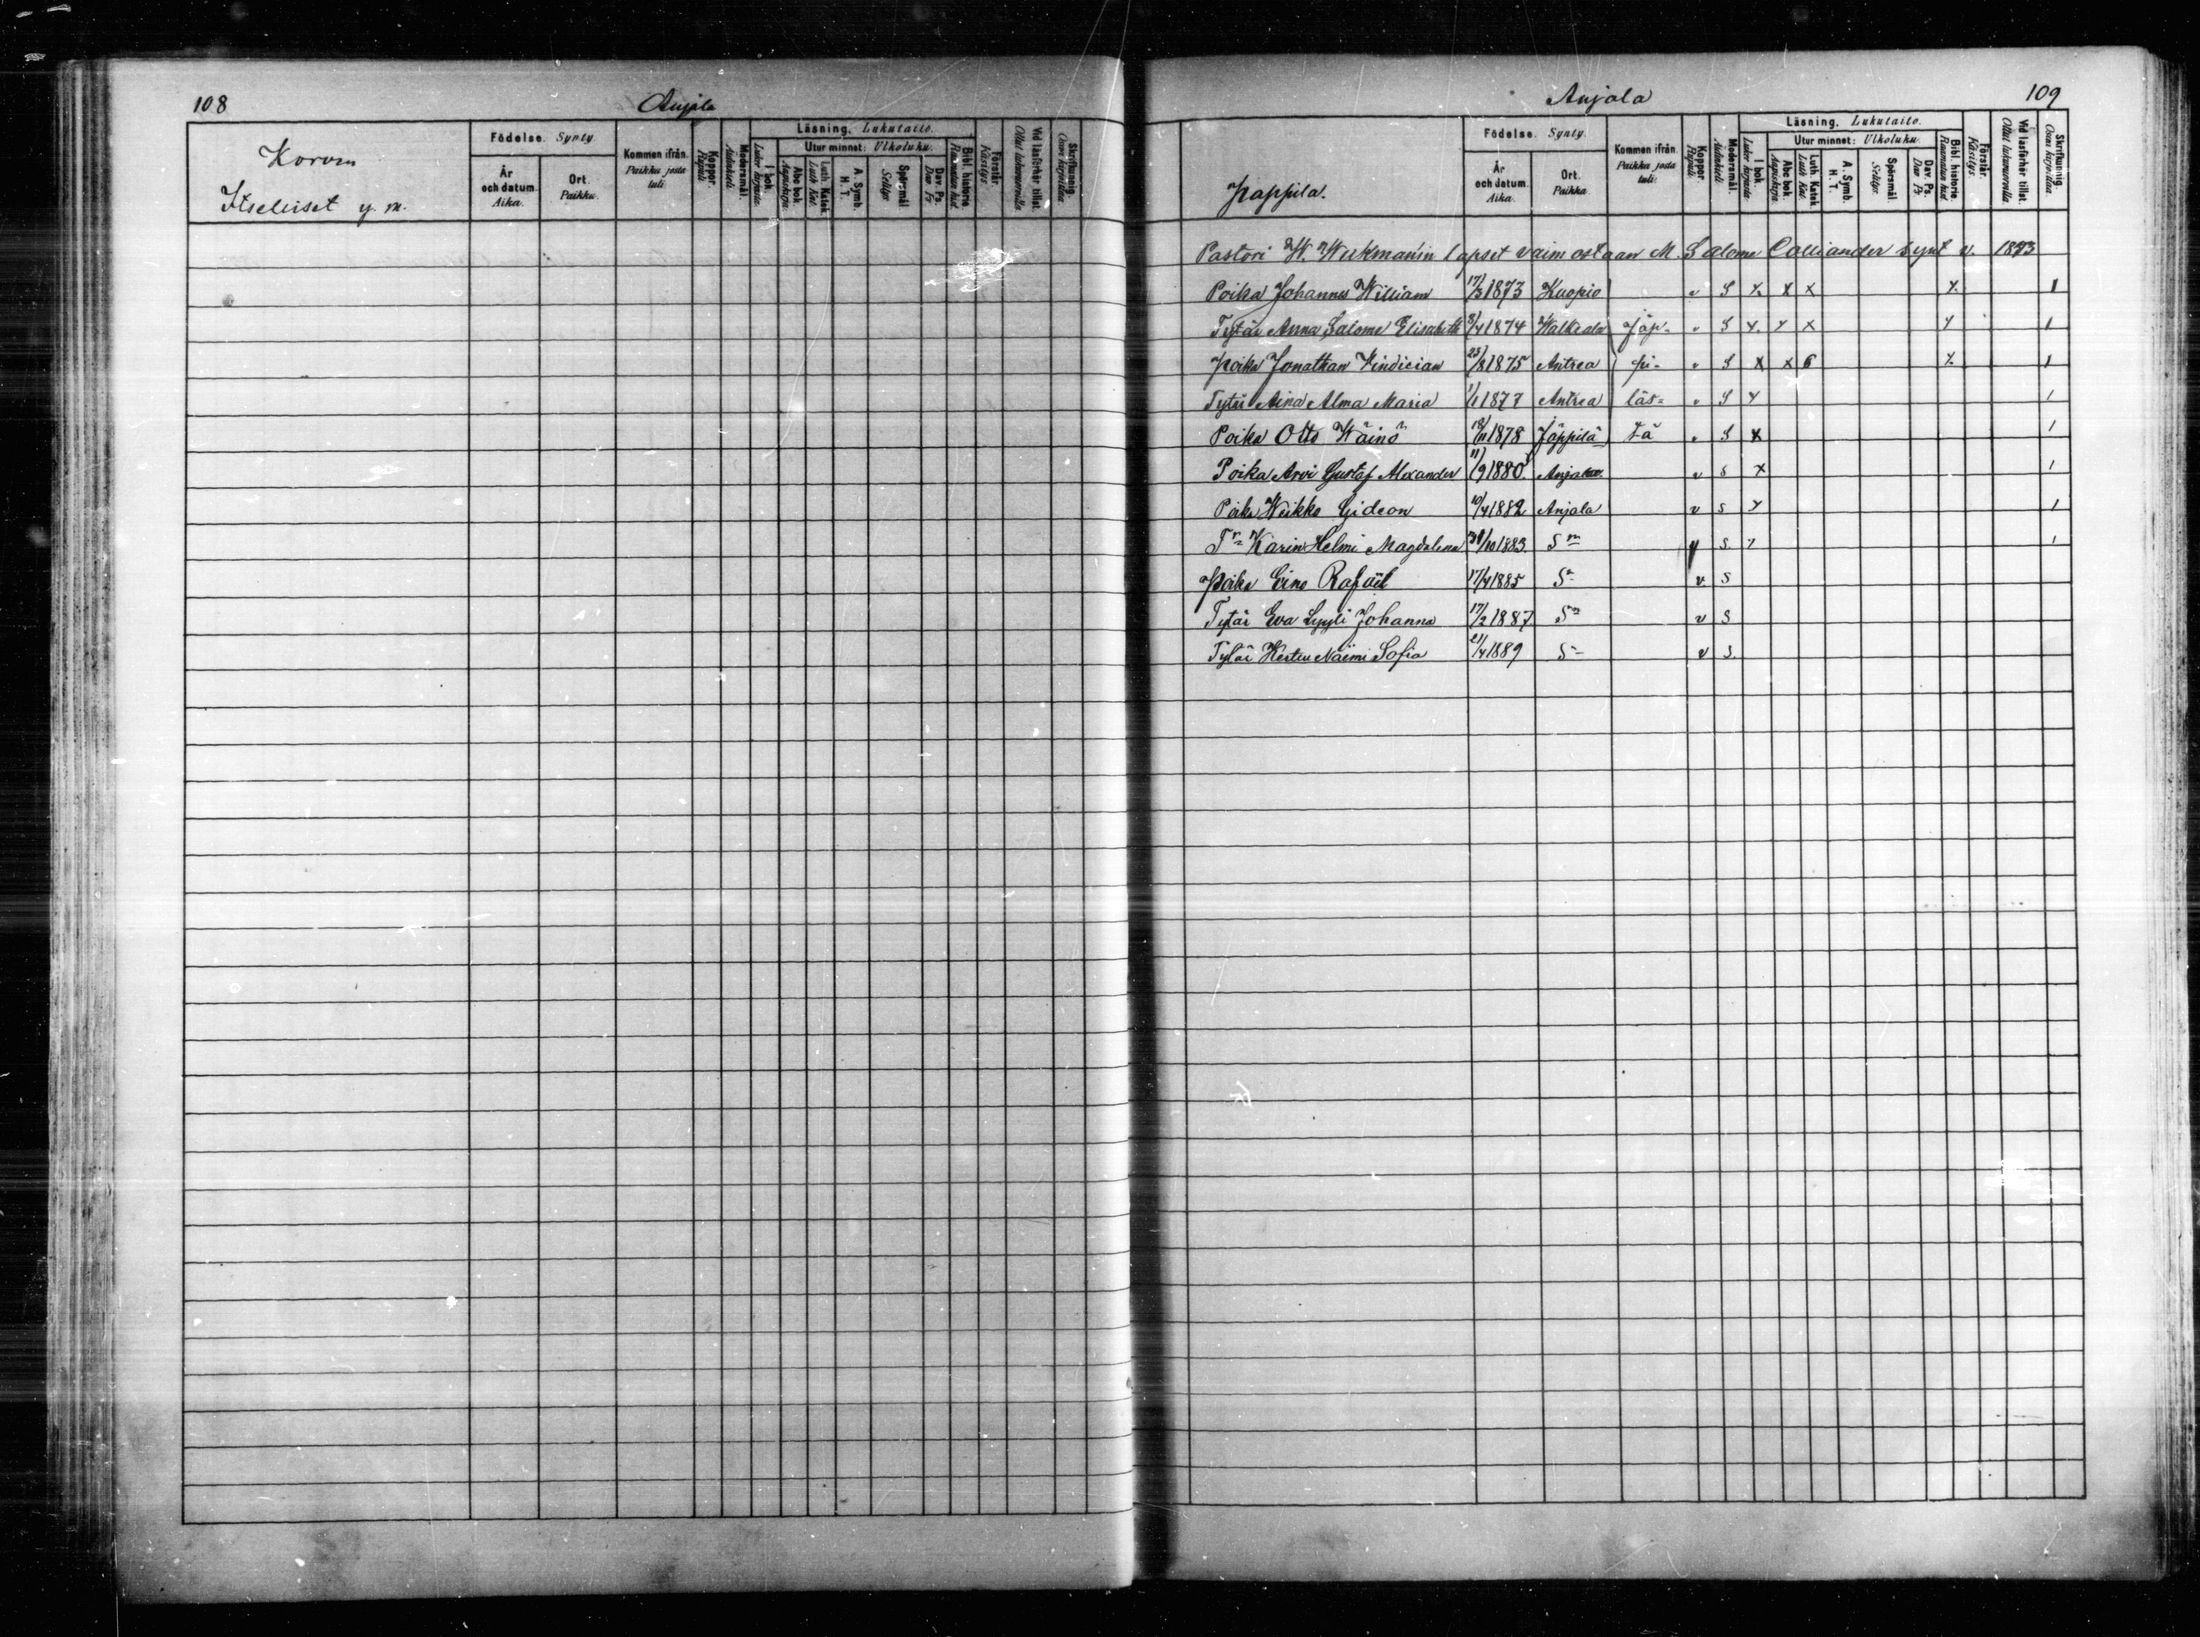 108
Anjala
Korven
Itselliset y. m.
Födelse. Synty.
År och datum. Aika.
Ort. Paikka.
Kommen ifrån. Paikka josta tuli
Koppor. Rupuli
Modersmål. Äidinkieli
Läsning. Lukutaito.
I bok. Lukee kirjasta
Utur minnet: Ulkoluku.
Abc bok. Aapiskirja
Luth. Katek. Luth. Kat.
A. Symb. H. T.
Spörsmål Selitys.
Dav. Ps. Dav. Ps.
Bibl. historie. Raamatun hist.
Förstår. Käsitys
Vid läsförhör tillst. Ollut lukuvuorolla.
Skrifkunnig. Osaa kirjoittaa.
Anjala
109
Pappila.
Födelse. Synty.
År och datum. Aika.
Ort. Paikka.
Kommen ifrån. Paikka josta tuli:
Koppor. Rupuli
Modersmål. Äidinkieli
Läsning. Lukutaito.
I bok. Lukee kirjasta
Utur minnet: Ulkoluku.
Abc bok. Aapiskirja
Luth. Katek. Luth. Kat.
A. Symb. H. T.
Spörsmål Selitys.
Dav. Ps. Dav. Ps.
Bibl. historie. Raamatun hist.
Förstår. Käsitys
Vid läsförhör tillst. Ollut lukuvuorolla.
Skrifkunnig. Osaa kirjoittaa.
Pastori W. Wukmanin lapset vaimostaan M. Salome Calliander synt v. 1873
Poika Johannes William 17/3 1873 Kuopio v S x x x x 1
Tytär Anna Salome Elisabeth 8/4 1874 Walkeala Jäp- v S x x x x 1
Poika Jonathan Vindician 23/8 1875 Antrea pi- v S x x 6 x 1
Tytär Aina Alma Maria 1/1 1877 Antrea läs- v S x 1
Poika Otto Wäinö 18/11 1878 Jäppilä tä v S x 1
Poika Arvi Gustaf Alexander 11/9 1880 Anjala v S x 1
Poika Weikko Gideon 10/4 1882 Anjala v S x 1
Tr Karin Helmi Magdalena 31/10 1883 Sm v S. x 1
Poika Eino Rafaël 17/4 1885 S v. S
Tytär Eva Lyyli Johanna 17/2 1887 Sm v S
Tytär Hertta Naëmi Sofia 21/4 1889 S v S.